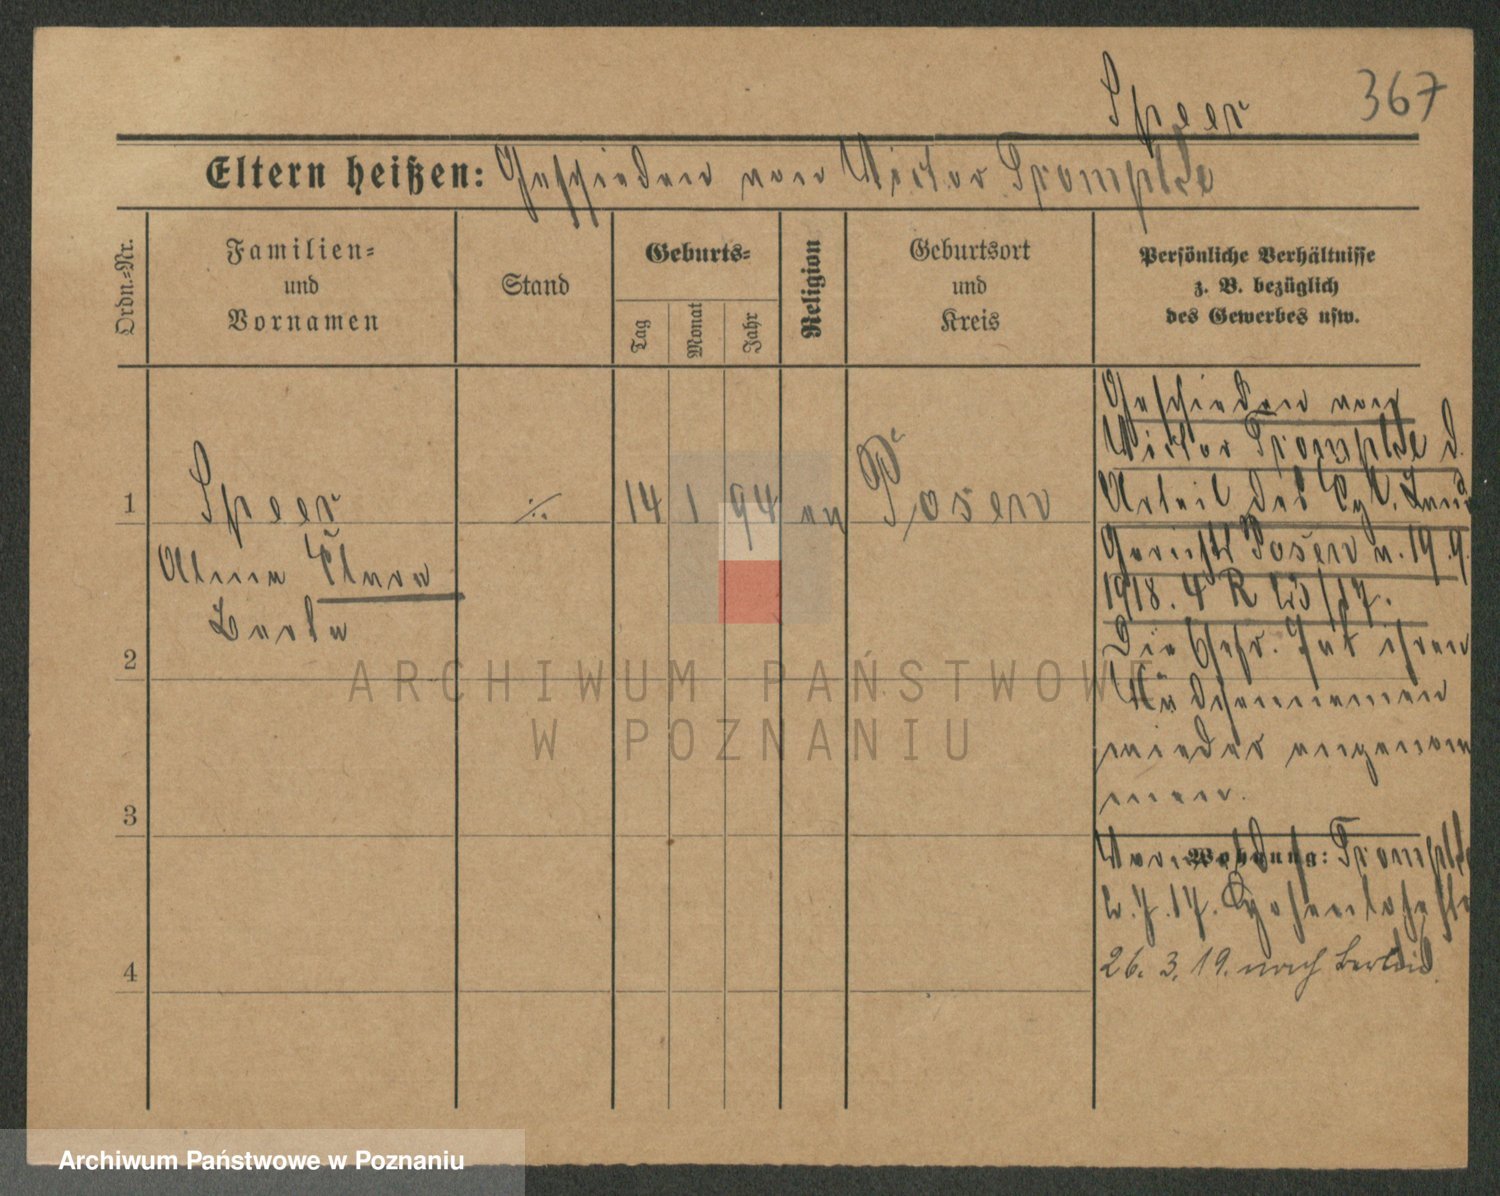 Speer 367
Eltern heißen: Geschieden von Victor Trompke
Ordn.-Nr.
Familien-
und
Vornamen
Stand
Geburts-
Tag
Monat
Jahr
Religion
Geburtsort
und
Kreis
Persönliche Verhältnisse
z. B. bezüglich
des Gewerbes usw.
1 Speer ·/· 14 1 94 ev Posen
Alma Clara
Berta
2
3
4
Geschieden von
Victor Trompke d.
Urteil des Kgl. Land
Gerichts Posen v. 19.9.
1918. 4 R 23/17.
Die Gesch. hat ihren
Mädchennamen
wieder angenom
men.
Wohnung: Trompke
26. 3. 19. nach Berlin
ARCHIWUM PAŃSTWOWE
W POZNANIU
Archiwum Państwowe w Poznaniu